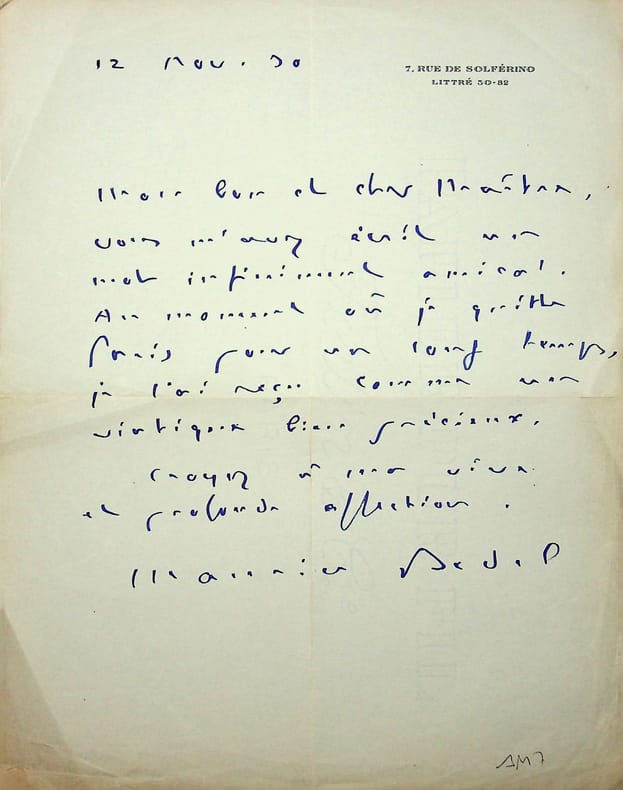 12 Nov. 30
7, RUE DE SOLFÉRINO
LITTRÉ 50-82
Mon bon et cher Maître,
vous m'avez écrit un
mot infiniment amical.
Au moment où je quitte
Paris pour un long temps,
je l'ai reçu comme un
viatique bien précieux.
Croyez à ma vive
et profonde affection.
Maurice Bedel
AM7